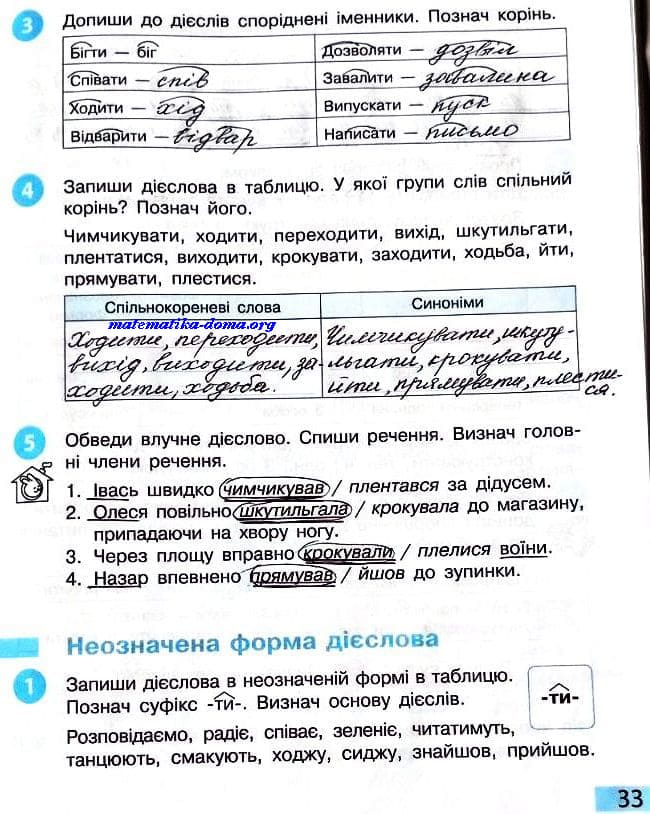 3 Допиши до дієслів споріднені іменники. Познач корінь.
Бігти — біг
Дозволяти — дозвіл
Співати — спів
Завалити — завалина
Ходити — хід
Випускати — пуск
Відварити — відвар
Написати — письмо
4 Запиши дієслова в таблицю. У якої групи слів спільний
корінь? Познач його.
Чимчикувати, ходити, переходити, вихід, шкутильгати,
плентатися, виходити, крокувати, заходити, ходьба, йти,
прямувати, плестися.
Спільнокореневі слова
Синоніми
matematika-doma.org
Ходити, переходити,
вихід, виходити, за-
ходити, ходьба.
Чимчикувати, шкути-
льгати, крокувати,
йти, прямувати, плести-
ся.
5 Обведи влучне дієслово. Спиши речення. Визнач голов-
ні члени речення.
1. Івась швидко чимчикував / плентався за дідусем.
2. Олеся повільно шкутильгала / крокувала до магазину,
припадаючи на хвору ногу.
3. Через площу вправно крокували / плелися воїни.
4. Назар впевнено прямував / йшов до зупинки.
Неозначена форма дієслова
1 Запиши дієслова в неозначеній формі в таблицю.
Познач суфікс -ти-. Визнач основу дієслів.
-ти-
Розповідаємо, радіє, співає, зеленіє, читатимуть,
танцюють, смакують, ходжу, сиджу, знайшов, прийшов.
33